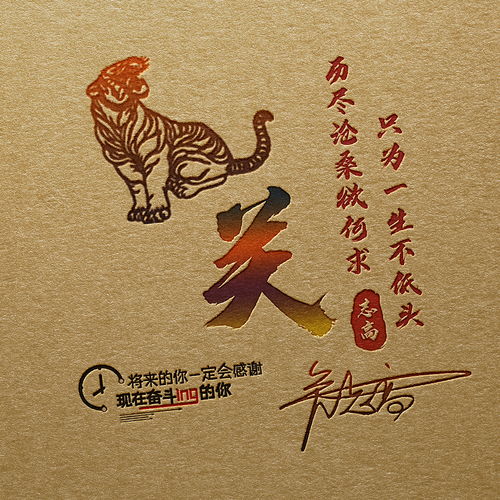 只为一生不低头
历尽沧桑欲何求
志高
关
将来的你一定会感谢
现在奋斗ing的你
关志高